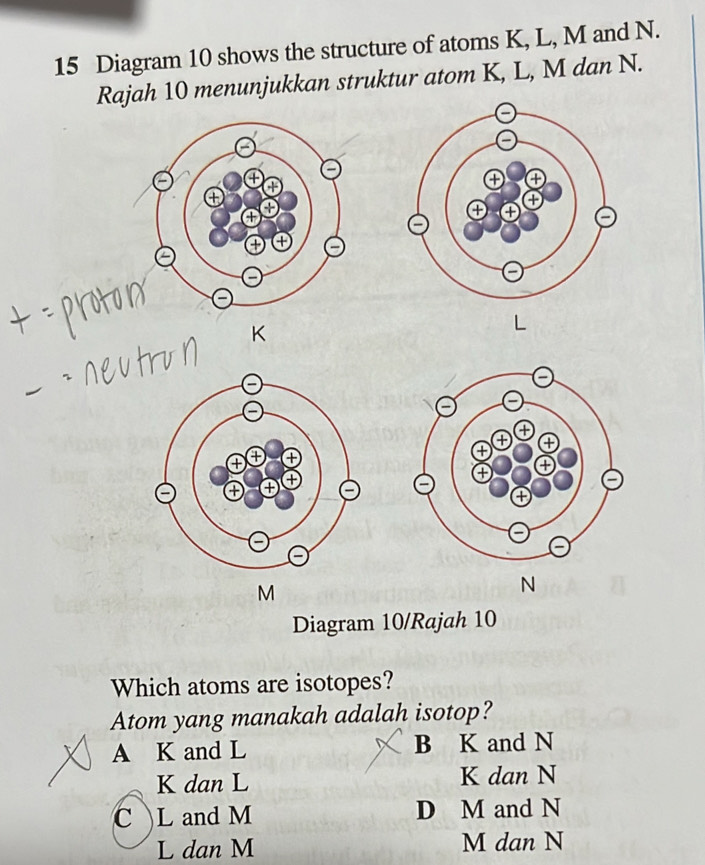 15 Diagram 10 shows the structure of atoms K, L, M and N.
Rajah 10 menunjukkan struktur atom K, L, M dan N.
+ = proton
- = neutron
K
L
M
N
Diagram 10/Rajah 10
Which atoms are isotopes?
Atom yang manakah adalah isotop?
A K and L
K dan L
B K and N
K dan N
C L and M
L dan M
D M and N
M dan N